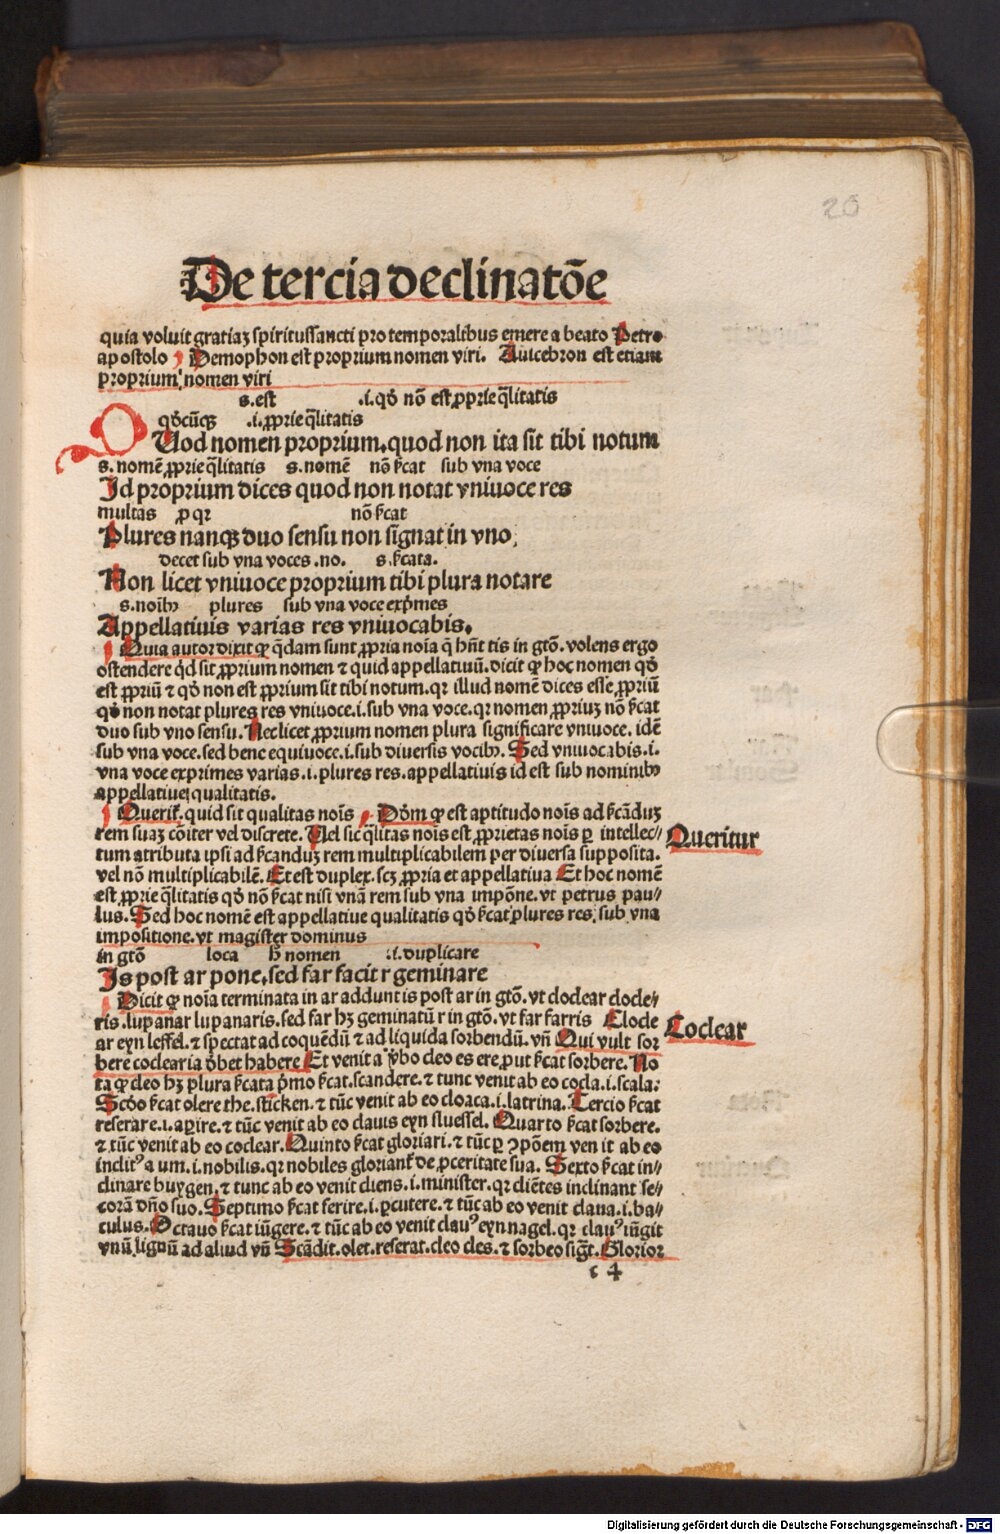 20
De tercia declinatōe
quia voluit gratiaꝫ spiritussancti pro temporalibus emere a beato Petro
apostolo Demophon est proprium nomen viri. Auicebron est etiam
proprium nomen viri
s.est .i.qđ nō est ꝓprie q̄litatis
qđcūqꝫ .i.ꝓprie q̄litatis
QUod nomen proprium.quod non ita sit tibi notum
s.nomē ꝓprie q̄litatis s.nomē nō ſcat sub vna voce
Id proprium dices quod non notat vniuoce res
multas ꝓ qꝛ nō ſcat
Plures nanqꝫ duo sensu non signat in vno,
decet sub vna voces.no. s.ſcata.
Non licet vniuoce proprium tibi plura notare
s.noībꝰ plures sub vna voce exp̄mes
Appellatiuis varias res vniuocabis.
Quia autor dixit ꝙ q̄dam sunt ꝓpria noīa q̄ hn̄t tis in gtō.volens ergo
ostendere qd sit ꝓprium nomen ⁊ quid appellatiuū.dicit ꝙ hoc nomen qđ
est ꝓpriū ⁊ qđ non est ꝓprium sit tibi notum.qꝛ illud nomē dices esse ꝓpriū
qđ non notat plures res vniuoce.i.sub vna voce.qꝛ nomen ꝓpriuꝫ nō ſcat
duo sub vno sensu. Nec licet ꝓprium nomen plura significare vniuoce. idē
sub vna voce.sed bene equiuoce.i.sub diuersis vocibꝰ. Sed vniuocabis.i.
vna voce exprimes varias.i.plures res.appellatiuis id est sub nominibꝰ
appellatiue qualitatis.
Querit̄.quid sit qualitas noīs Dōm ꝙ est aptitudo noīs ad ſcāduꝫ
rem suaꝫ cōiter vel discrete. Uel sic q̄litas noīs est ꝓprietas noīs ꝑ intellec⸗
tum atributa ipsi ad ſcanduꝫ rem multiplicabilem per diuersa supposita.
vel nō multiplicabilē. Et est duplex.scꝫ ꝓpria et appellatiua Et hoc nomē
est ꝓprie q̄litatis qđ nō ſcat nisi vnā rem sub vna impōne.vt petrus pau⸗
lus. Sed hoc nomē est appellatiue qualitatis qđ ſcat plures res.sub vna
impositione.vt magister dominus
Queritur
in gtō loca h̄ nomen .i.duplicare
Is post ar pone.sed far facit r geminare
Dicit ꝙ noīa terminata in ar addunt is post ar in gtō.vt cloclear clocle⸗
ris.lupanar lupanaris.sed far hꝫ geminatū r in gtō.vt far farris Clocle
ar eyn leffel.⁊ spectat ad coquēdū ⁊ ad liquida sorbendū.vn̄ Qui vult sor
bere coclearia dꝫbet habere Et venit a v̄bo cleo es ere ꝓut ſcat sorbere. No
ta ꝙ cleo hꝫ plura ſcata p̄mo ſcat.scandere.⁊ tunc venit ab eo coclea.i.scala:
Scđo ſcat olere the.sticken.⁊ tūc venit ab eo cloaca.i.latrina. Tercio ſcat
reserare.i.aꝑire.⁊ tūc venit ab eo clauis eyn sluessel. Quarto ſcat sorbere.
⁊ tūc venit ab eo coclear. Quinto ſcat gloriari.⁊ tūc ꝑ ↄpōem ven it ab eo
inclitꝰ a um.i.nobilis.qꝛ nobiles gloriant̄ de ꝓceritate sua. Sexto ſcat in⸗
clinare buygen.⁊ tunc ab eo venit cliens.i.minister.qꝛ cliētes inclinant se⸗
corā dn̄o suo. Septimo ſcat ferire.i.ꝑcutere.⁊ tūc ab eo venit claua.i.ba⸗
culus. Octauo ſcat iūgere.⁊ tūc ab eo venit clauꝰ eyn nagel.qꝛ clauꝰ iūgit
vnū lignū ad aliud vn̄ Scādit.olet.reserat.cleo cles.⁊ sorbeo sigt̄. Glorior
Coclear
c 4
Digitalisierung gefördert durch die Deutsche Forschungsgemeinschaft - DFG